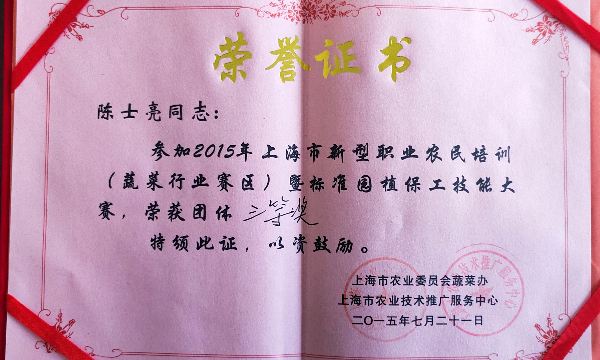 荣誉证书
陈士亮同志：
参加2015年上海市新型职业农民培训
（蔬菜行业赛区）暨标准园植保工技能大
赛，荣获团体三等奖
特领此证，以资鼓励。
上海市农业委员会蔬菜办
上海市农业技术推广服务中心
二〇一五年七月二十一日